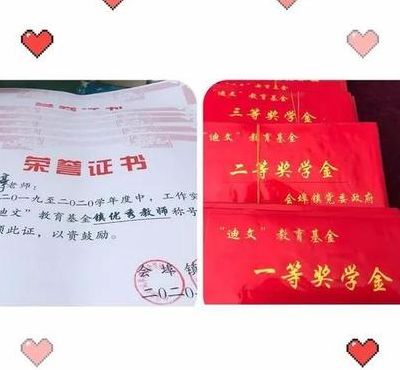 荣誉证书
老师:
二〇一九至二〇二〇学年度中，工作
迪文”教育基金镇优秀教师称号
此证，以资鼓励。
会埠镇
二〇二〇
三等奖学金
“迪文”教育基金
二等奖学金
会埠镇党委政府
“迪文”教育基金
一等奖学金